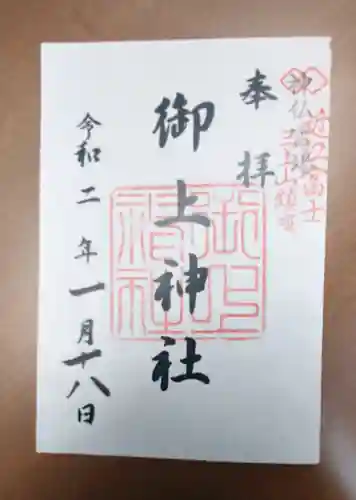 近江富士
奉拝
御上神社
令和二年一月十八日